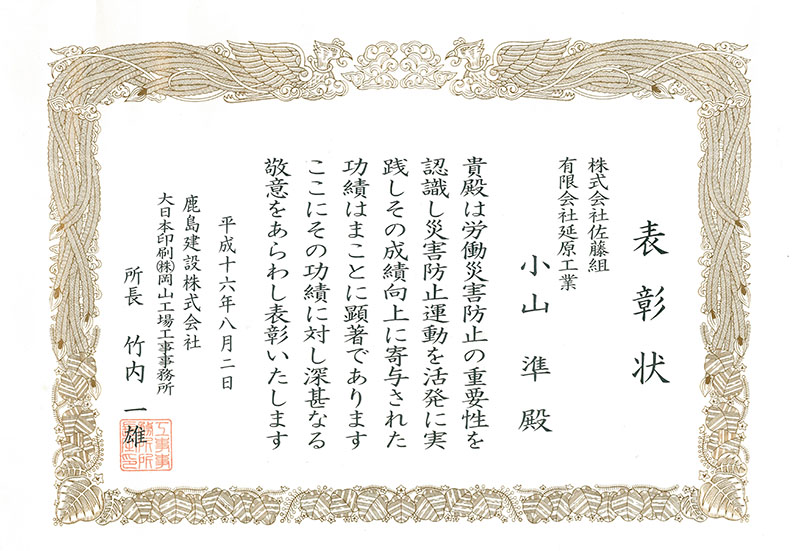 表彰状
株式会社佐藤組
有限会社延原工業
小山準殿
貴殿は労働災害防止の重要性を
認識し災害防止運動を活発に実
践しその成績向上に寄与された
功績はまことに顕著であります
ここにその功績に対し深甚なる
敬意をあらわし表彰いたします
平成十六年八月二日
鹿島建設株式会社
大日本印刷㈱岡山工場工事事務所
所長 竹内一雄